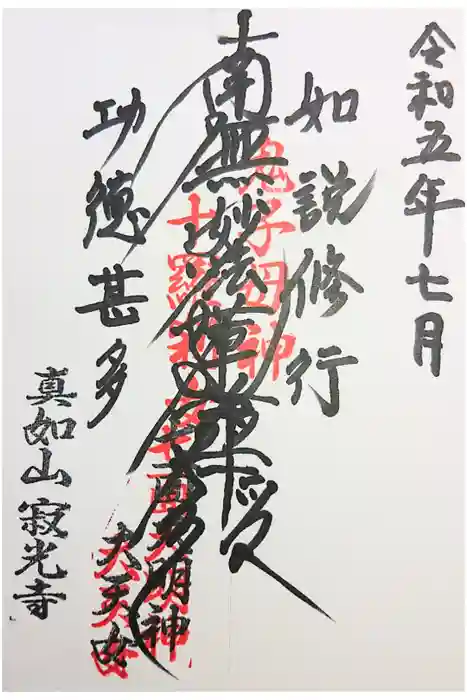 令和五年七月
如説修行
鬼子母神
南無妙法蓮華経
十羅刹女
大明神
大天女
功徳甚多
真如山寂光寺